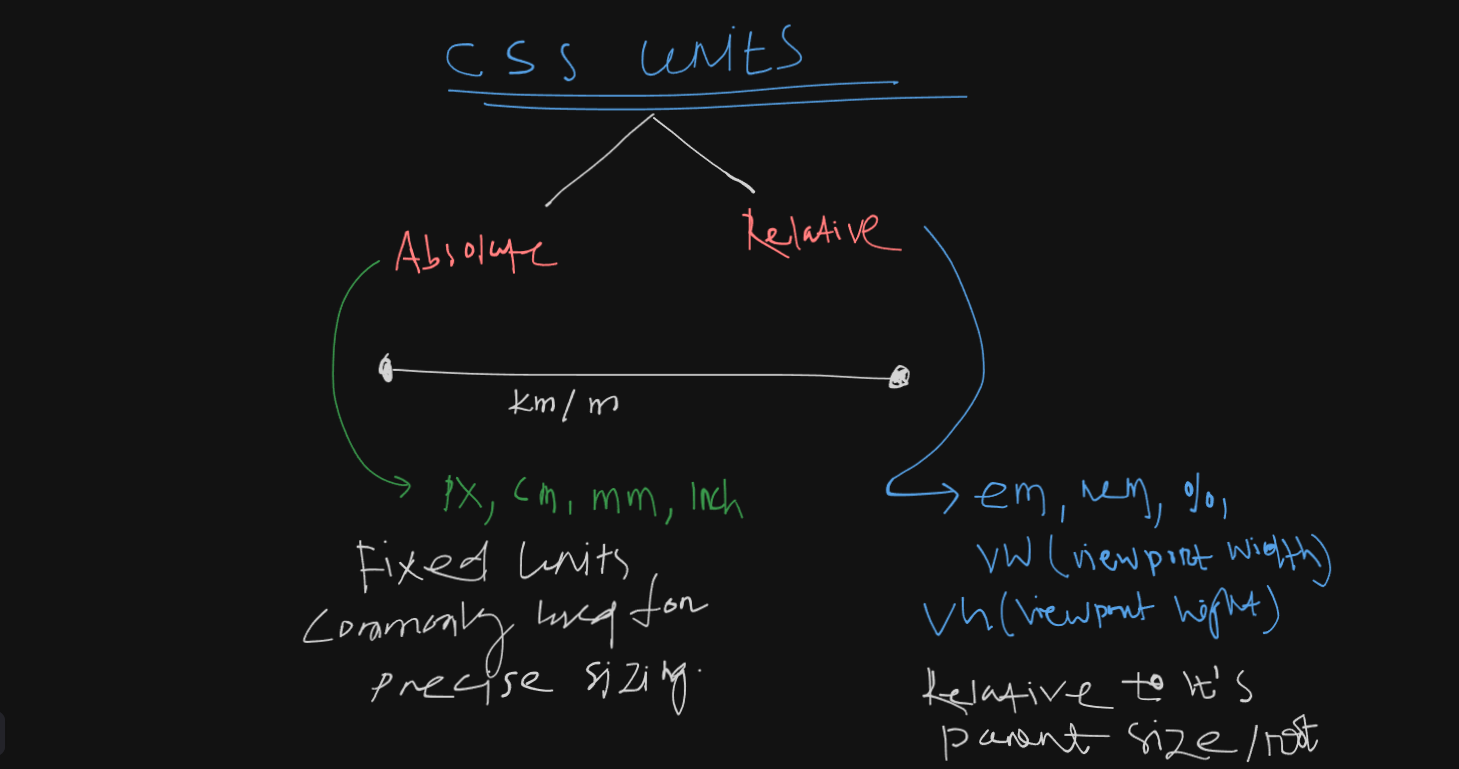 CSS UNITS
Absolute
Relative
km/m
px, cm, mm, inch
Fixed units
commonly used for
precise sizing.
em, rem, %,
vw (viewport width)
vh (viewport hight)
Relative to it's
parent size/root